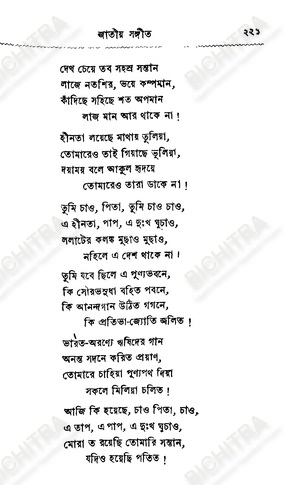 জাতীয় সঙ্গীত ২২১
দেখ চেয়ে তব সহস্র সন্তান
লাজে নতশির, ভয়ে কম্পমান,
কাঁদিছে সহিছে শত অপমান
লাজ মান আর থাকে না !
হীনতা লয়েছে মাথায় তুলিয়া,
তোমারেও তাই গিয়াছে ভুলিয়া,
দয়াময় বলে আকুল হৃদয়ে
তোমারেও তারা ডাকে না !
তুমি চাও, পিতা, তুমি চাও চাও,
এ হীনতা, পাপ, এ দুঃখ ঘুচাও,
ললাটের কলঙ্ক মুছাও মুছাও,
নহিলে এ দেশ থাকে না ।
তুমি যবে ছিলে এ পুণ্যভবনে,
কি সৌরভসুধা বহিত পবনে,
কি আনন্দগান উঠিত গগনে,
কি প্রতিভা-জ্যোতি জ্বলিত !
ভারত-অরণ্যে ঋষিদের গান
অনন্ত সদনে করিত প্রয়াণ,
তোমারে চাহিয়া পুণ্যপথ দিয়া
সকলে মিলিয়া চলিত !
আজি কি হয়েছে, চাও পিতা, চাও,
এ তাপ, এ পাপ, এ দুঃখ ঘুচাও,
মোরা ত রয়েছি তোমারি সন্তান,
যদিও হয়েছি পতিত !
BICHITRA
BICHITRA
BICHITRA
BICHITRA